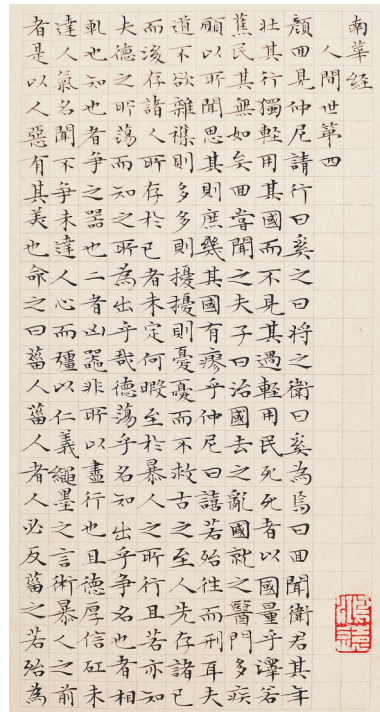 南華經
人間世第四
顏回見仲尼請行曰奚之曰將之衛曰奚為焉曰回聞衛君其年
壯其行獨輕用其國而不見其過輕用民死死者以國量乎澤若
蕉民其無如矣回嘗聞之夫子曰治國去之亂國就之醫門多疾
願以所聞思其則庶幾其國有瘳乎仲尼曰譆若殆往而刑耳夫
道不欲雜襍則多多則擾擾則憂憂而不救古之至人先存諸已
而後存諸人所存於已者未定何暇至於暴人之所行且若亦知
夫德之所蕩而知之所為出乎哉德蕩乎名知出乎争名也者相
軋也知也者争之器也二者凶器非所以盡行也且德厚信矼未
達人氣名聞不争未達人心而彊以仁義繩墨之言術暴人之前
者是以人惡有其美也命之曰菑人菑人者人必反菑之若殆為